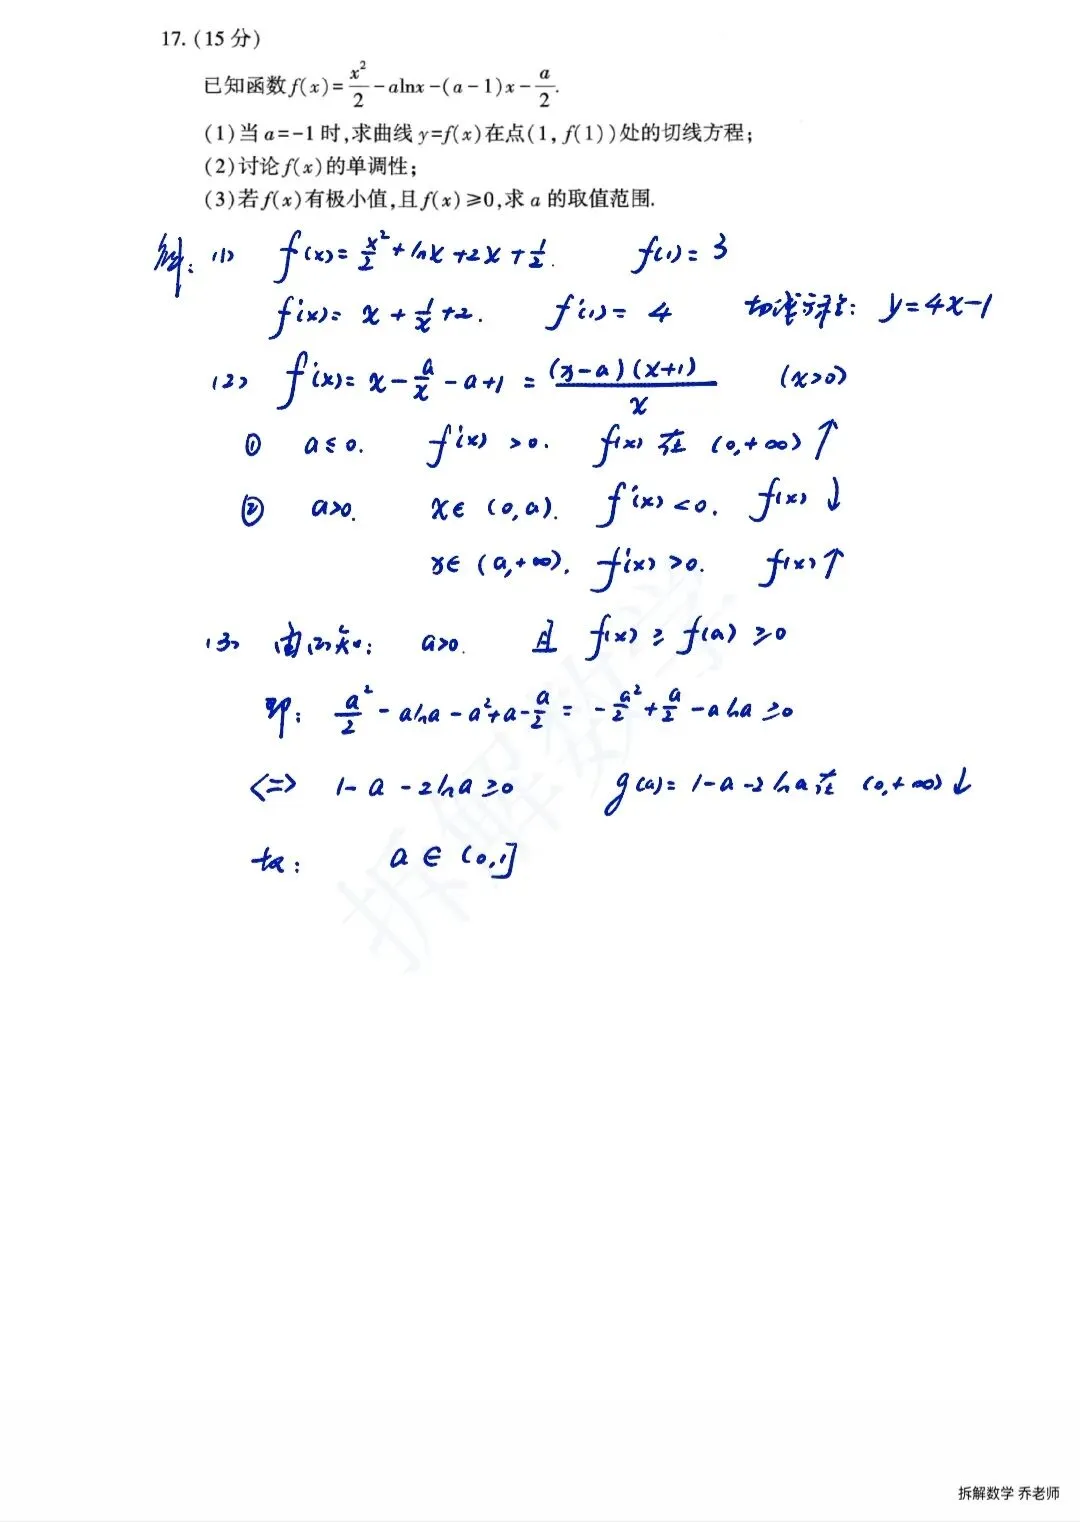 17. (15分)
已知函数f(x)=x²/2-alnx-(a-1)x-a/2.
(1)当a=-1时,求曲线y=f(x)在点(1,f(1))处的切线方程;
(2)讨论f(x)的单调性;
(3)若f(x)有极小值,且f(x)≥0,求a的取值范围.
解: (1) f(x)=x²/2+lnx+2x+1/2. f(1)=3
f'(x)=x+1/x+2. f'(1)=4 切线方程: y=4x-1
(2) f'(x)=x-a/x-a+1=(x-a)(x+1)/x (x>0)
① a≤0. f'(x)>0. f(x)在(0,+∞)↑
② a>0. x∈(0,a). f'(x)<0. f(x)↓
x∈(a,+∞). f'(x)>0. f(x)↑
(3) 由(2)知: a>0. 且 f(x)≥f(a)≥0
即: a²/2-alna-a²+a-a/2=-a²/2+a/2-alna≥0
<=> 1-a-2lna≥0 g(a)=1-a-2lna在(0,+∞)↓
故: a∈(0,1]
拆解数学
拆解数学 乔老师